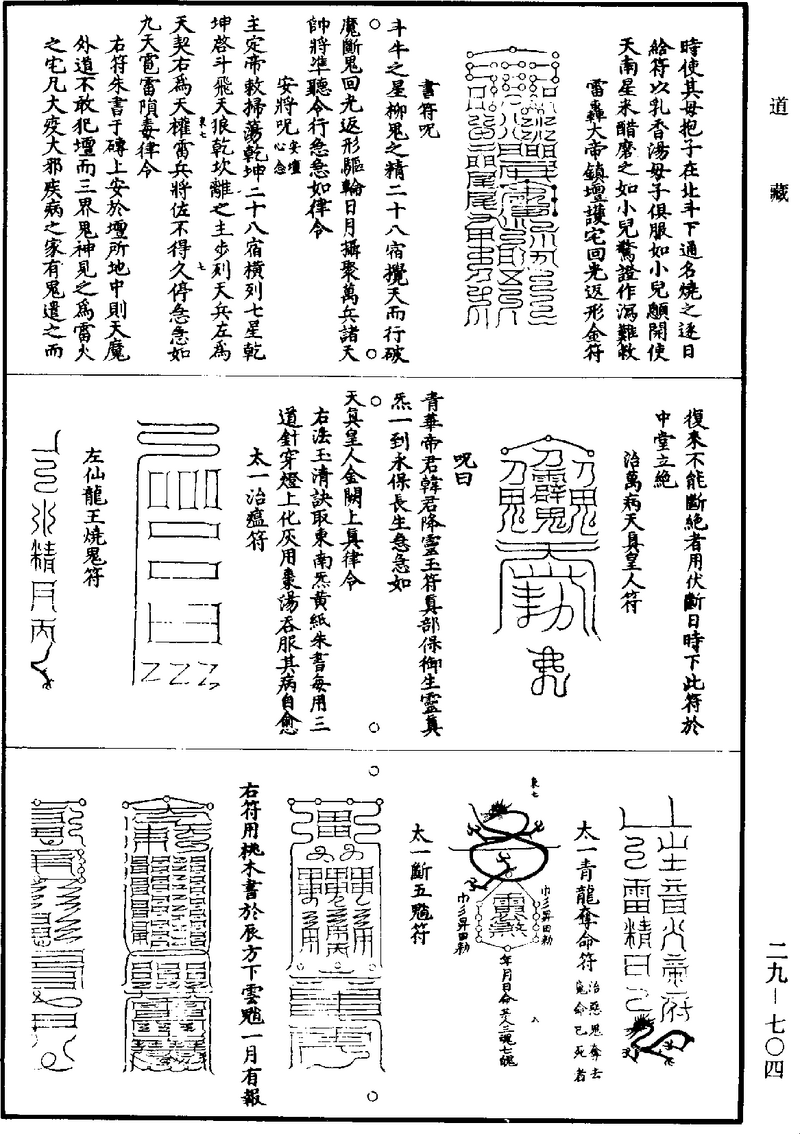 道藏
時使其母抱子在北斗下通名燒之逐日
給符以乳香湯母子俱服如小兒顖開使
天南星米醋磨之如小兒驚證作瀉難救
雷轟大帝鎮壇護宅回光返形金符
書符呪
斗牛之星柳鬼之精二十八宿攪天而行破
魔斷鬼回光返形驅輪日月攝聚萬兵諸天
帥將準聽令行急急如律令
安將呪安壇心念
主定帝敕掃蕩乾坤二十八宿橫列七星乾
坤啓斗飛天狼乾坎離之主步列天兵左爲
天契右爲天權雷兵將佐不得久停急急如
九天雹雷隕毒律令
右符朱書于磚上安於壇所地中則天魔
外道不敢犯壇而三界鬼神見之爲雷火
之宅凡大疫大邪疾病之家有鬼遣之而
復來不能斷絕者用伏斷日時下此符於
中堂立絶
治萬病天真皇人符
呪曰
青華帝君韓君降靈玉符真部保御生靈真
炁一到永保長生急急如
天真皇人金闕上真律令
右法玉清訣取東南炁黃紙朱書每用三
道針穿燈上化灰用棗湯吞服其病自愈
太一治瘟符
左仙龍王燒鬼符
水精月丙
山土音火帝府
雷精日己
太一青龍奪命符治惡鬼奪去魂命已死者
巾彡昇田勅
巾彡昇田勅
年月日命某人三魂七魄
太一斷五𩲃符
右符用桃木書於辰方下雲𩲃一月有報
二九—七〇四